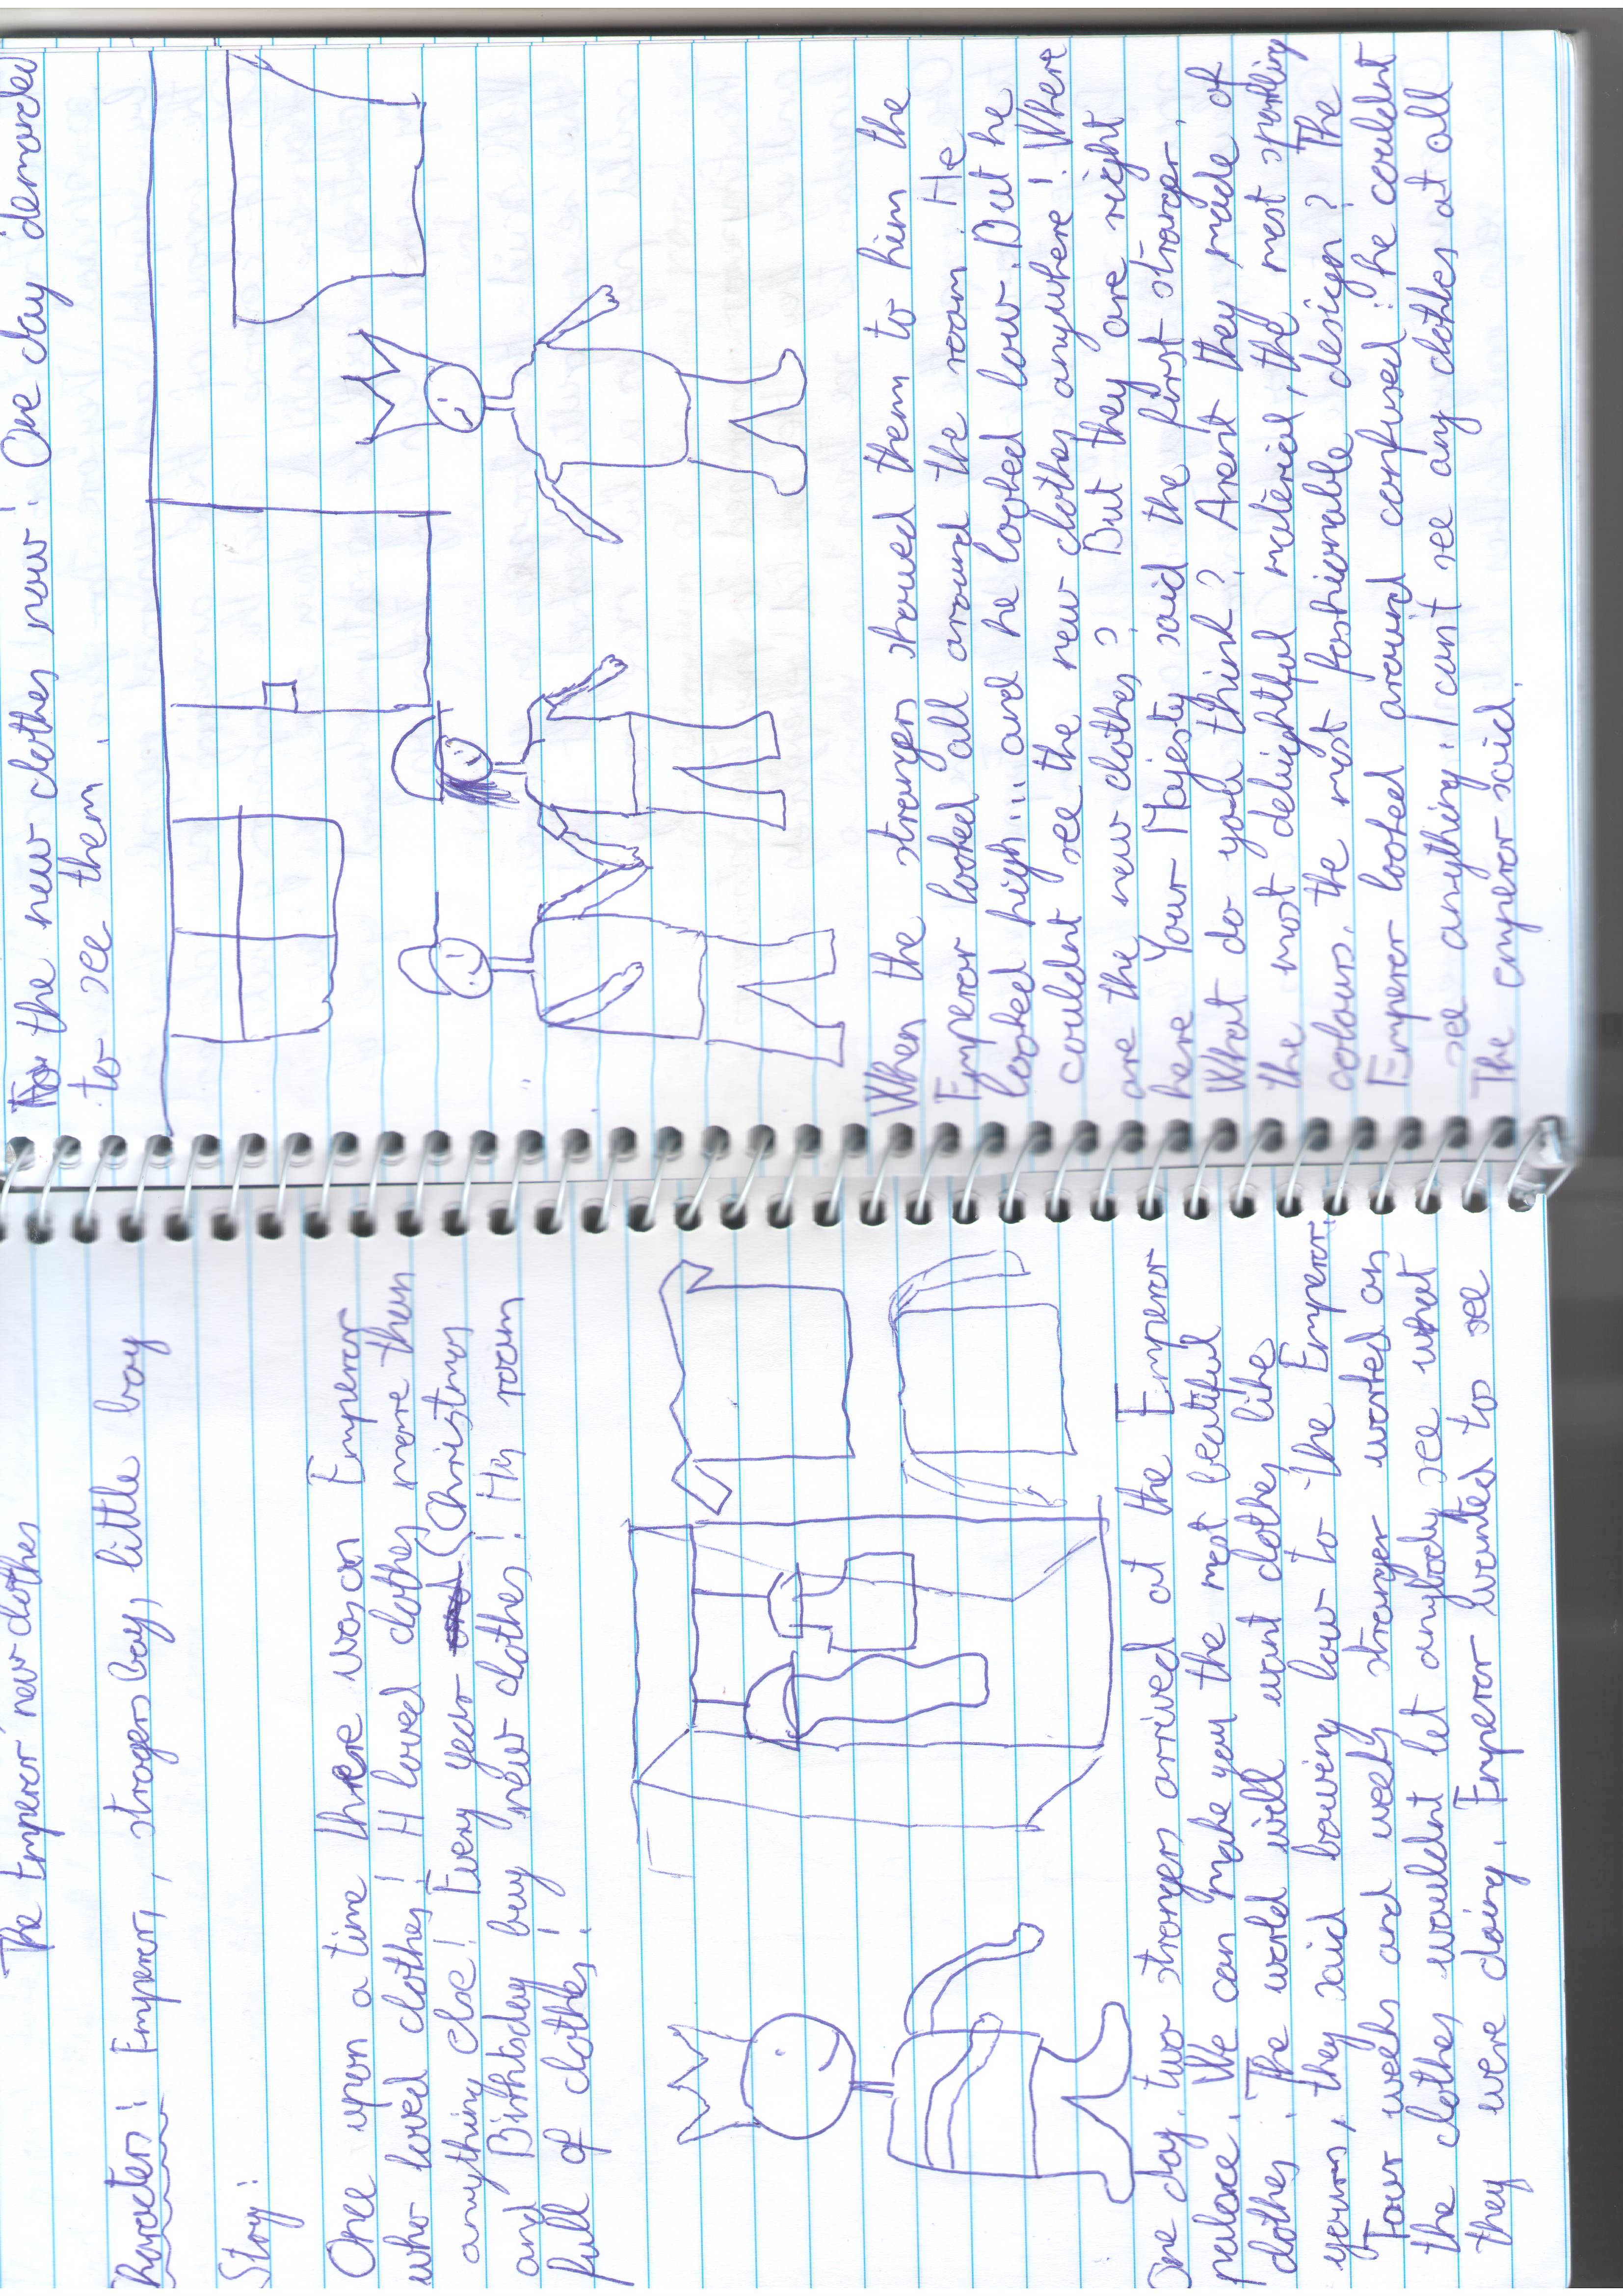 The Emperor new clothes
Characters: Emperor, strangers boy, little boy
Story:
Once upon a time there was an Emperor
who loved clothes! H loved clothes more then
anything else! Every year (Christmas
and Birthtsday buy new clothes! His room
full of clothes!
One day, two strangers arrived at the Emperor
palace. We can make you the most beatiful
clothes. The world will want clothes like
yours, they said bowing low to the Emperor.
Four weeks and weeks stranger worked on
the clothes wouldent let anybody see what
they were doing. Emperor wanted to see
the new clothes now! One day demanded
to see them.
When the strangers showed them to him the
Emperor looked all around the room. He
looked high... and he looked low. But he
couldent see the new clothes anywhere! Where
are the new clothes? But they are right
here Your Majesty said the first stranger.
What do you think? Arent they made of
the most delightful material, the most sparkling
colours, the most fashionable design? The
Emperor looked around confused: he couldent
see anything. I can't see any clothes at all
The emperor said.